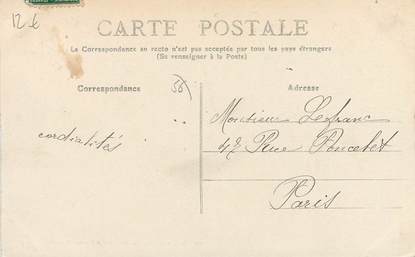 12 €
CARTE POSTALE
La Correspondance au recto n'est pas acceptée par tous les pays étrangers
(Se renseigner à la Poste)
Correspondance
Adresse
cordialités
Monsieur Lefranc
47 Rue Poncelet
Paris